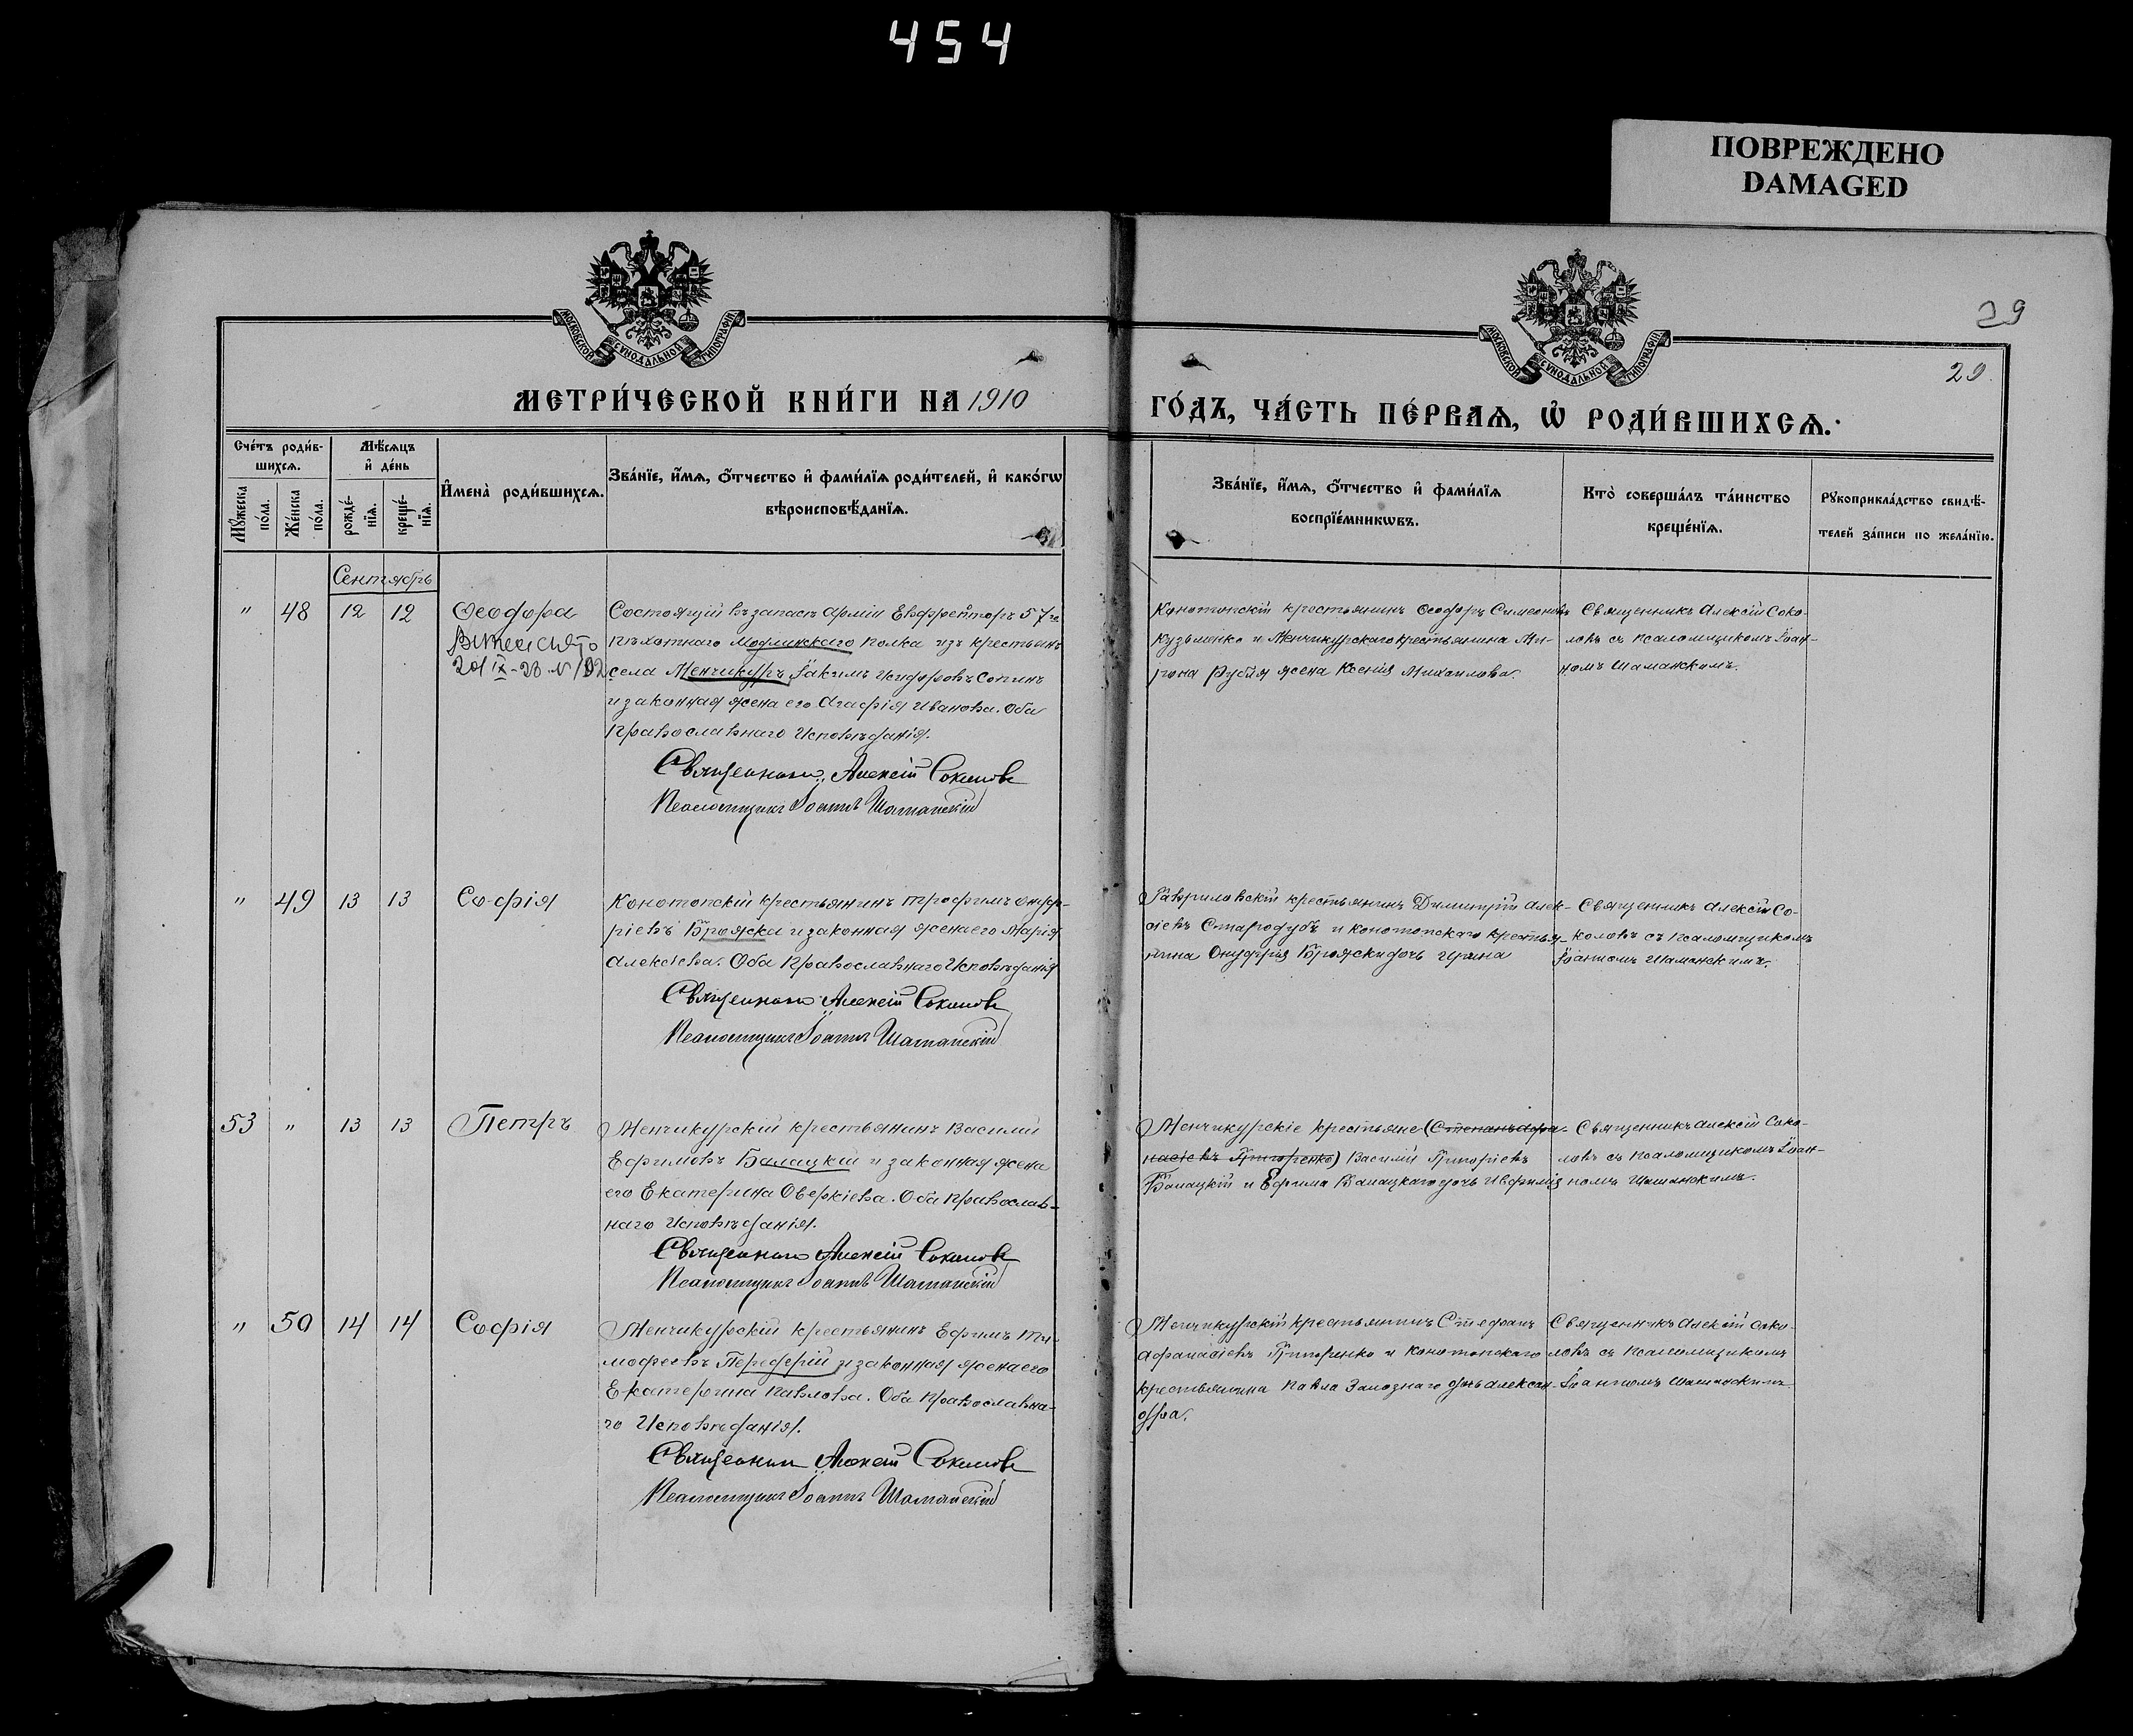 454
ПОВРЕЖДЕНО
DAMAGED
МОСКОВСКОЙ СѴНОДАЛЬНОЙ ТИПОГРАФІИ
МОСКОВСКОЙ СѴНОДАЛЬНОЙ ТИПОГРАФІИ
29
29.
МЕТРИ́ЧЕСКОЙ КНИ́ГИ НА 1910
ГО́ДЪ, ЧА́СТЬ ПЕ́РВАѦ, Ѡ҆ РОДИ́ВШИХСѦ.
Сче́тъ роди́в-
шихсѧ.
Мѣ́сѧцъ
и҆ де́нь
Мꙋ́жеска
по́ла.
Же́нска
по́ла.
рожде́-
нїѧ.
креще́-
нїѧ.
И҆мена̀ роди́вшихсѧ.
Зва́нїе, и҆́мѧ, ѻ҆́тчество и҆ фами́лїѧ роди́телей, и҆ како́гѡ
вѣроисповѣ́данїѧ.
Зва́нїе, и҆́мѧ, ѻ҆́тчество и҆ фами́лїѧ
воспрїе́мникѡвъ.
Кто̀ соверша́лъ та́инство
креще́нїѧ.
Рꙋкоприкла́дство свидѣ́-
телей за́писи по жела́нїю.
Сентябрь
" 48 12 12 Ѳеодора
20/IX-23
Состоящій въ запасѣ Арміи Ефрейторъ 57го
пѣхотнаго Модлинскаго полка изъ крестьянъ
села Менчикуръ Іакимъ Исидоровъ Сопинъ
и законная жена его Агафія Иванова. Оба
Православнаго Исповѣданія.
Священникъ Алексій Соколовъ
Псаломщикъ Іоаннъ Шаманскій
Конотопскій крестьянинъ Ѳеодоръ Симеоновъ
Кузьменко и Менчикурскаго крестьянина Ми-
рона Рубля жена Ксенія Михаилова.
Священникъ Алексій Соко-
ловъ съ псаломщикомъ Іоан-
номъ Шаманскимъ.
" 49 13 13 Софія
Конотопскій крестьянинъ Трофимъ Онуф-
ріевъ Бряжска и законная жена его Марія
Алексіева. Оба Православнаго Исповѣданія
Священникъ Алексій Соколовъ
Псаломщикъ Іоаннъ Шаманскій
Гавриловскій крестьянинъ Димитрій Алек-
сіевъ Стародубъ и Конотопскаго крестья-
нина Онуфрія дочь Ирина
Священникъ Алексій Со-
коловъ съ псаломщикомъ
Іоанномъ Шаманскимъ.
53 " 13 13 Петръ
Менчикурскій крестьянинъ Василій
Ефимовъ Балацкій и законная жена
его Екатерина Оверкіева. Оба Православ-
наго Исповѣданія.
Священникъ Алексій Соколовъ
Псаломщикъ Іоаннъ Шаманскій
Менчикурскіе крестьяне (Степанъ Афа-
насіевъ Григоренко) Василій Григоріевъ
Балацкій и Ефима Балацкаго дочь Ивфимія
Священникъ Алексій Соко-
ловъ съ псаломщикомъ Іоан-
номъ Шаманскимъ.
" 50 14 14 Софія
Менчикурскій крестьянинъ Ефимъ Ти-
мофеевъ Передерій и законная жена его
Екатерина Павлова. Оба Православна-
го Исповѣданія.
Священникъ Алексій Соколовъ
Псаломщикъ Іоаннъ Шаманскій
Менчикурскій крестьянинъ Стефанъ
Афанасіевъ Григоренко и Конотопскаго
крестьянина Павла дочь Алексан-
дра.
Священникъ Алексій Соко-
ловъ съ псаломщикомъ
Іоанномъ Шаманскимъ